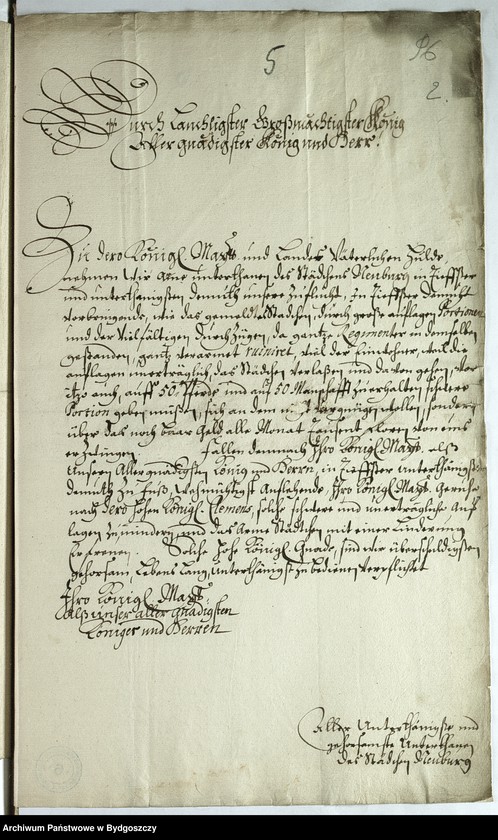 5
96
2.
Durch Lauchtigster Großmächtigster König
Aller gnädigster König und Herr!
Zu dero Königl. Maytt. und Landes Väterlichen Hulde
nehmen wir arme unterthanen des Städchens Neuburg in tieffster
und unterthänigsten demuth unsere Zuflucht, in tieffster demuth
vorbringende, wie das gemeldte Städchen, durch große auflagen Portionen
und der Vielfältigen durchzügen, da gantze Regimenter in demselben
gestanden, gantz verarmet ruinirt, viel der Einwohner, weil die
auflagen unerträglich, das Städchen verlaßen und davon gehen,
itzo auch, auff 50 Pferde und auf 50 Mannschafft zu erhalten schwere
Portion geben müßen, sich an dem nicht vergnügen wollen, sondern
über das noch baar Geld alle Monat tausent floren von uns
erzwingen. Fallen demnach Ihro Königl. Maytt. alß
Unsern Allergnädigsten König und Herrn, in tieffster unterthänigster
demuth zu Fuß, wehmüthigst anflehende Ihro Königl. Maytt. geruhe
nach dero hohen Königl. Clemens, solche schwere und unerträgliche Auf
lagen zu mindern, und das arme Städtchen mit einer Linderung
erfreuen. Solche hohe Königl. Gnade, sind wir überschuldigsten
gehorsam, Lebens Lang, unterthänigst zu bedienen verpflichtet
Ihro Königl. Maytt.
Alß unser aller gnädigsten
Königes und Herren
Aller Unterthänigste und
gehorsamste Unterthanen
des Städchen Neuburg
Archiwum Państwowe w Bydgoszczy